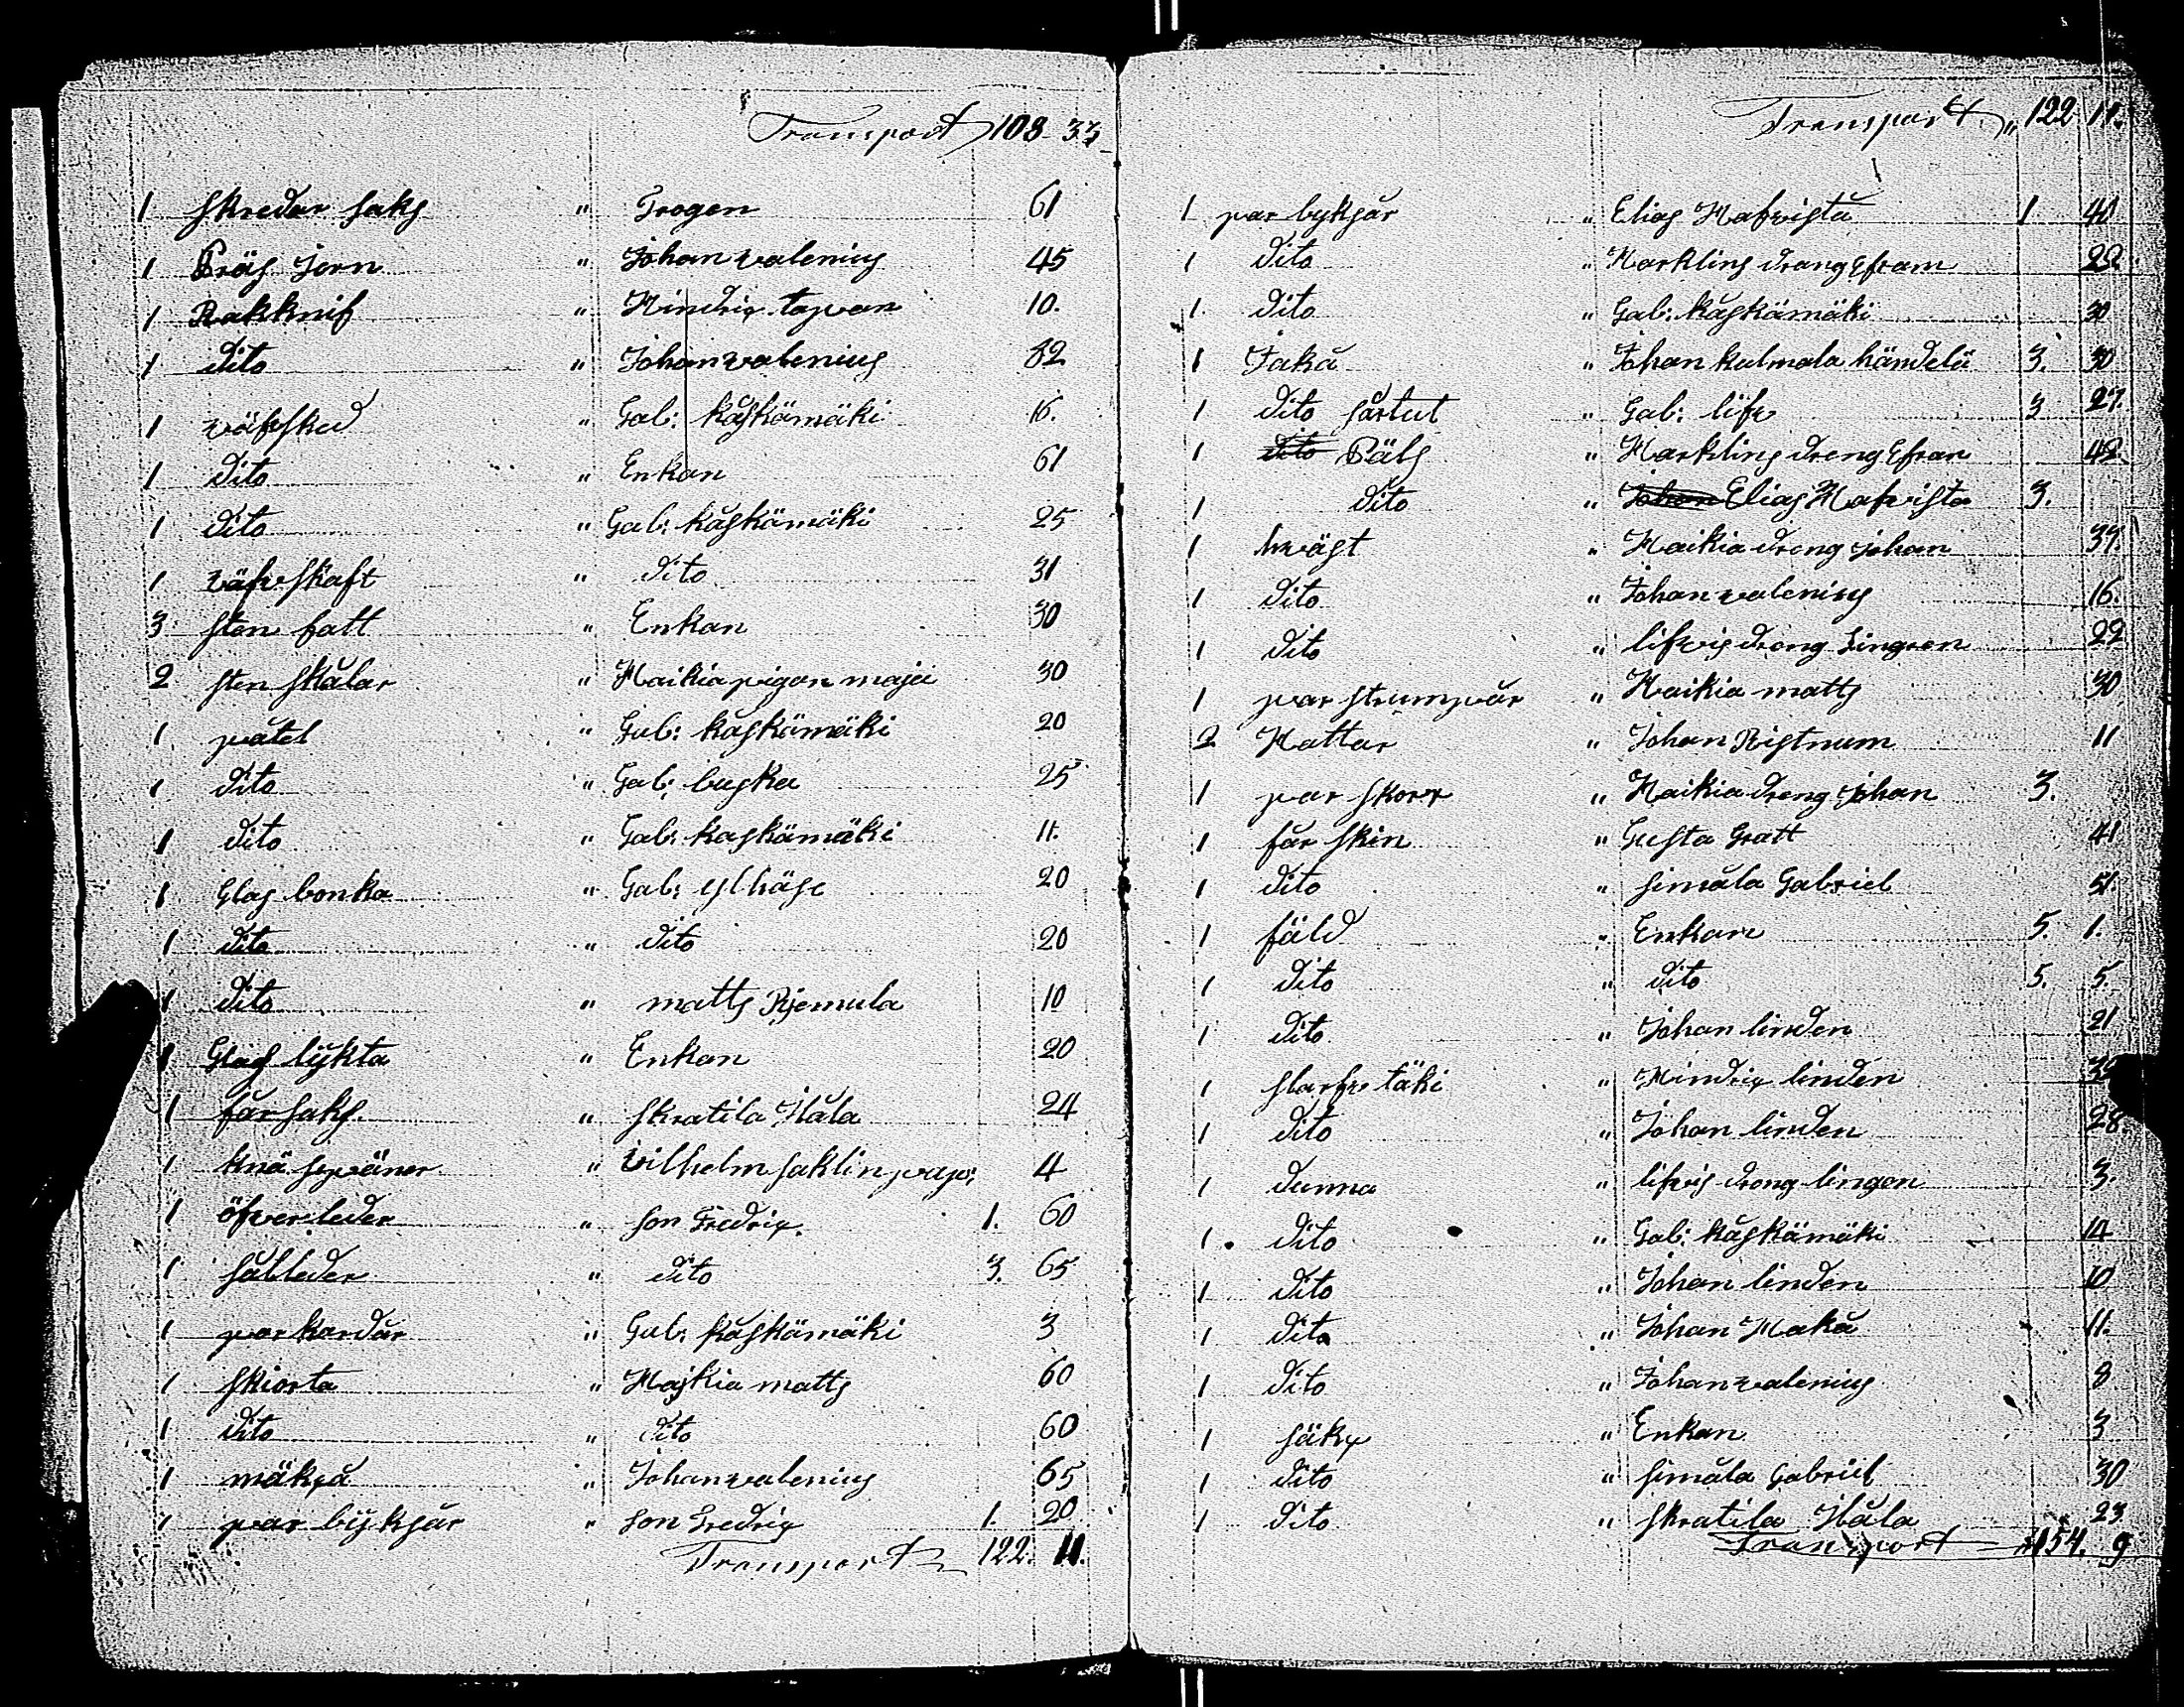 Transport 108 33
1 Skredar saks " Trogen 61
1 Präs Jern " Johan valenius 45
1 Rakknif " Hindrix tapvan 10.
1 dito " Johan valenius 82
1 väfsked " Gab: kåskämäki 16.
1 dito " Enkan 61
1 dito " Gab: kåskämäki 25
1 väfvskaft " dito 31
3 sten fatt " Enkan 30
2 sten skålar " Haikia pigan maja 30
1 patel " Gab: kaskämäki 20
1 dito " Gab: buska 25
1 dito " Gab: kaskämäki 11.
1 Glas bonka " Gab: ylhäse 20
1 dito " dito 20
1 dito " matts Rjemula 10
1 Glas lykta " Enkan 20
1 får saks " Skratila Håla 24
1 knä " Vilhelm Saklin 4
1 öfverleder " son Fredrix 1. 60
1 sålleder " dito 3. 65
1 par kardår " Gab: kåskämäki 3
1 skiorta " Hajkia matts 60
1 dito " dito 60
1 " Johan valenius 65
1 par byksår " son Fredrix 1. 20
Transport 122. 11.
Transport " 122 11.
1 par byksår " Elias Hafvista 1 40
1 dito " Harklins drang Efram 22
1 dito " Gab: kåskämäki 30
1 Jaka " Johan kulmala händelä 3. 30
1 dito sårtut " Gab: lifv 3 27.
1 dito Päls " Harklins dreng Efran 42
1 dito " Johan Elias Hafvista 3.
1 hwäst " Haikia dreng johan 37.
1 dito " Johan valenius 16.
1 dito " lifvis drong Lingren 22
1 par strumpår " Haikia matts 30
2 Hattar " Johan Ristnum 11
1 par skorr " Haikia dreng johan 3.
1 får skin " Gusta Gratt 41
1 dito " simåla Gabriel 51.
1 fäld " Enkan 5. 1.
1 dito " dito 5. 5.
1 dito " Johan linden 21
1 slarfv täki " Hindrix linden
1 dito " Johan linden 28.
1 dunna " lifvis drong lingon 3.
1 dito " Gab: kåskämäki 14
1 dito " Johan linden 10
1 dito " Johan Haka 11.
1 dito " Johan valenius 8
1 säkx " Enkan 3
1 dito " simåla Gabriel 30
1 dito " skratila Håla 23
Transport 154. 9